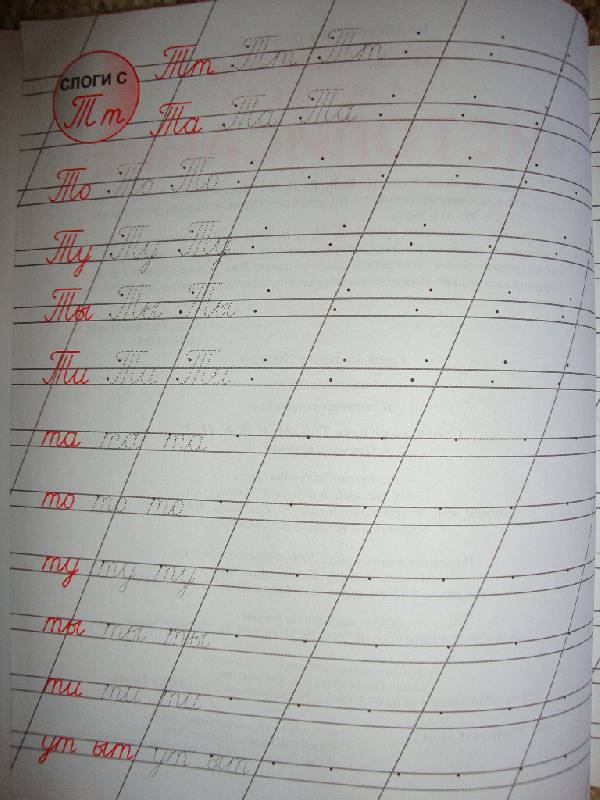 СЛОГИ С
Т т
Тт Тт Тт
Та Та Та
То То То
Ту Ту Ту
Ты Ты Ты
Ти Ти Ти
та та та
то то то
ту ту ту
ты ты ты
ти ти ти
ут ыт ут ыт